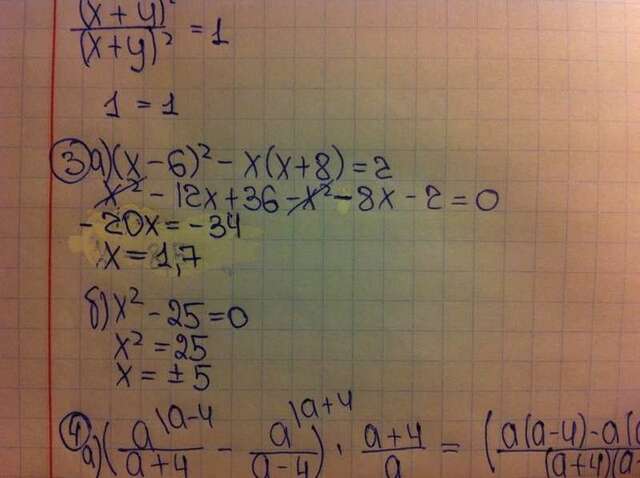 (x + y)²
(x + y)² = 1
1 = 1
3 а) (x - 6)² - x(x + 8) = 2
x² - 12x + 36 - x² - 8x - 2 = 0
- 20x = - 34
x = 1,7
б) x² - 25 = 0
x² = 25
x = ± 5
4 а) (a \a-4 / a+4 - a \a+4 / a-4) · a+4 / a = (a(a-4)-a(a / (a+4)(a-